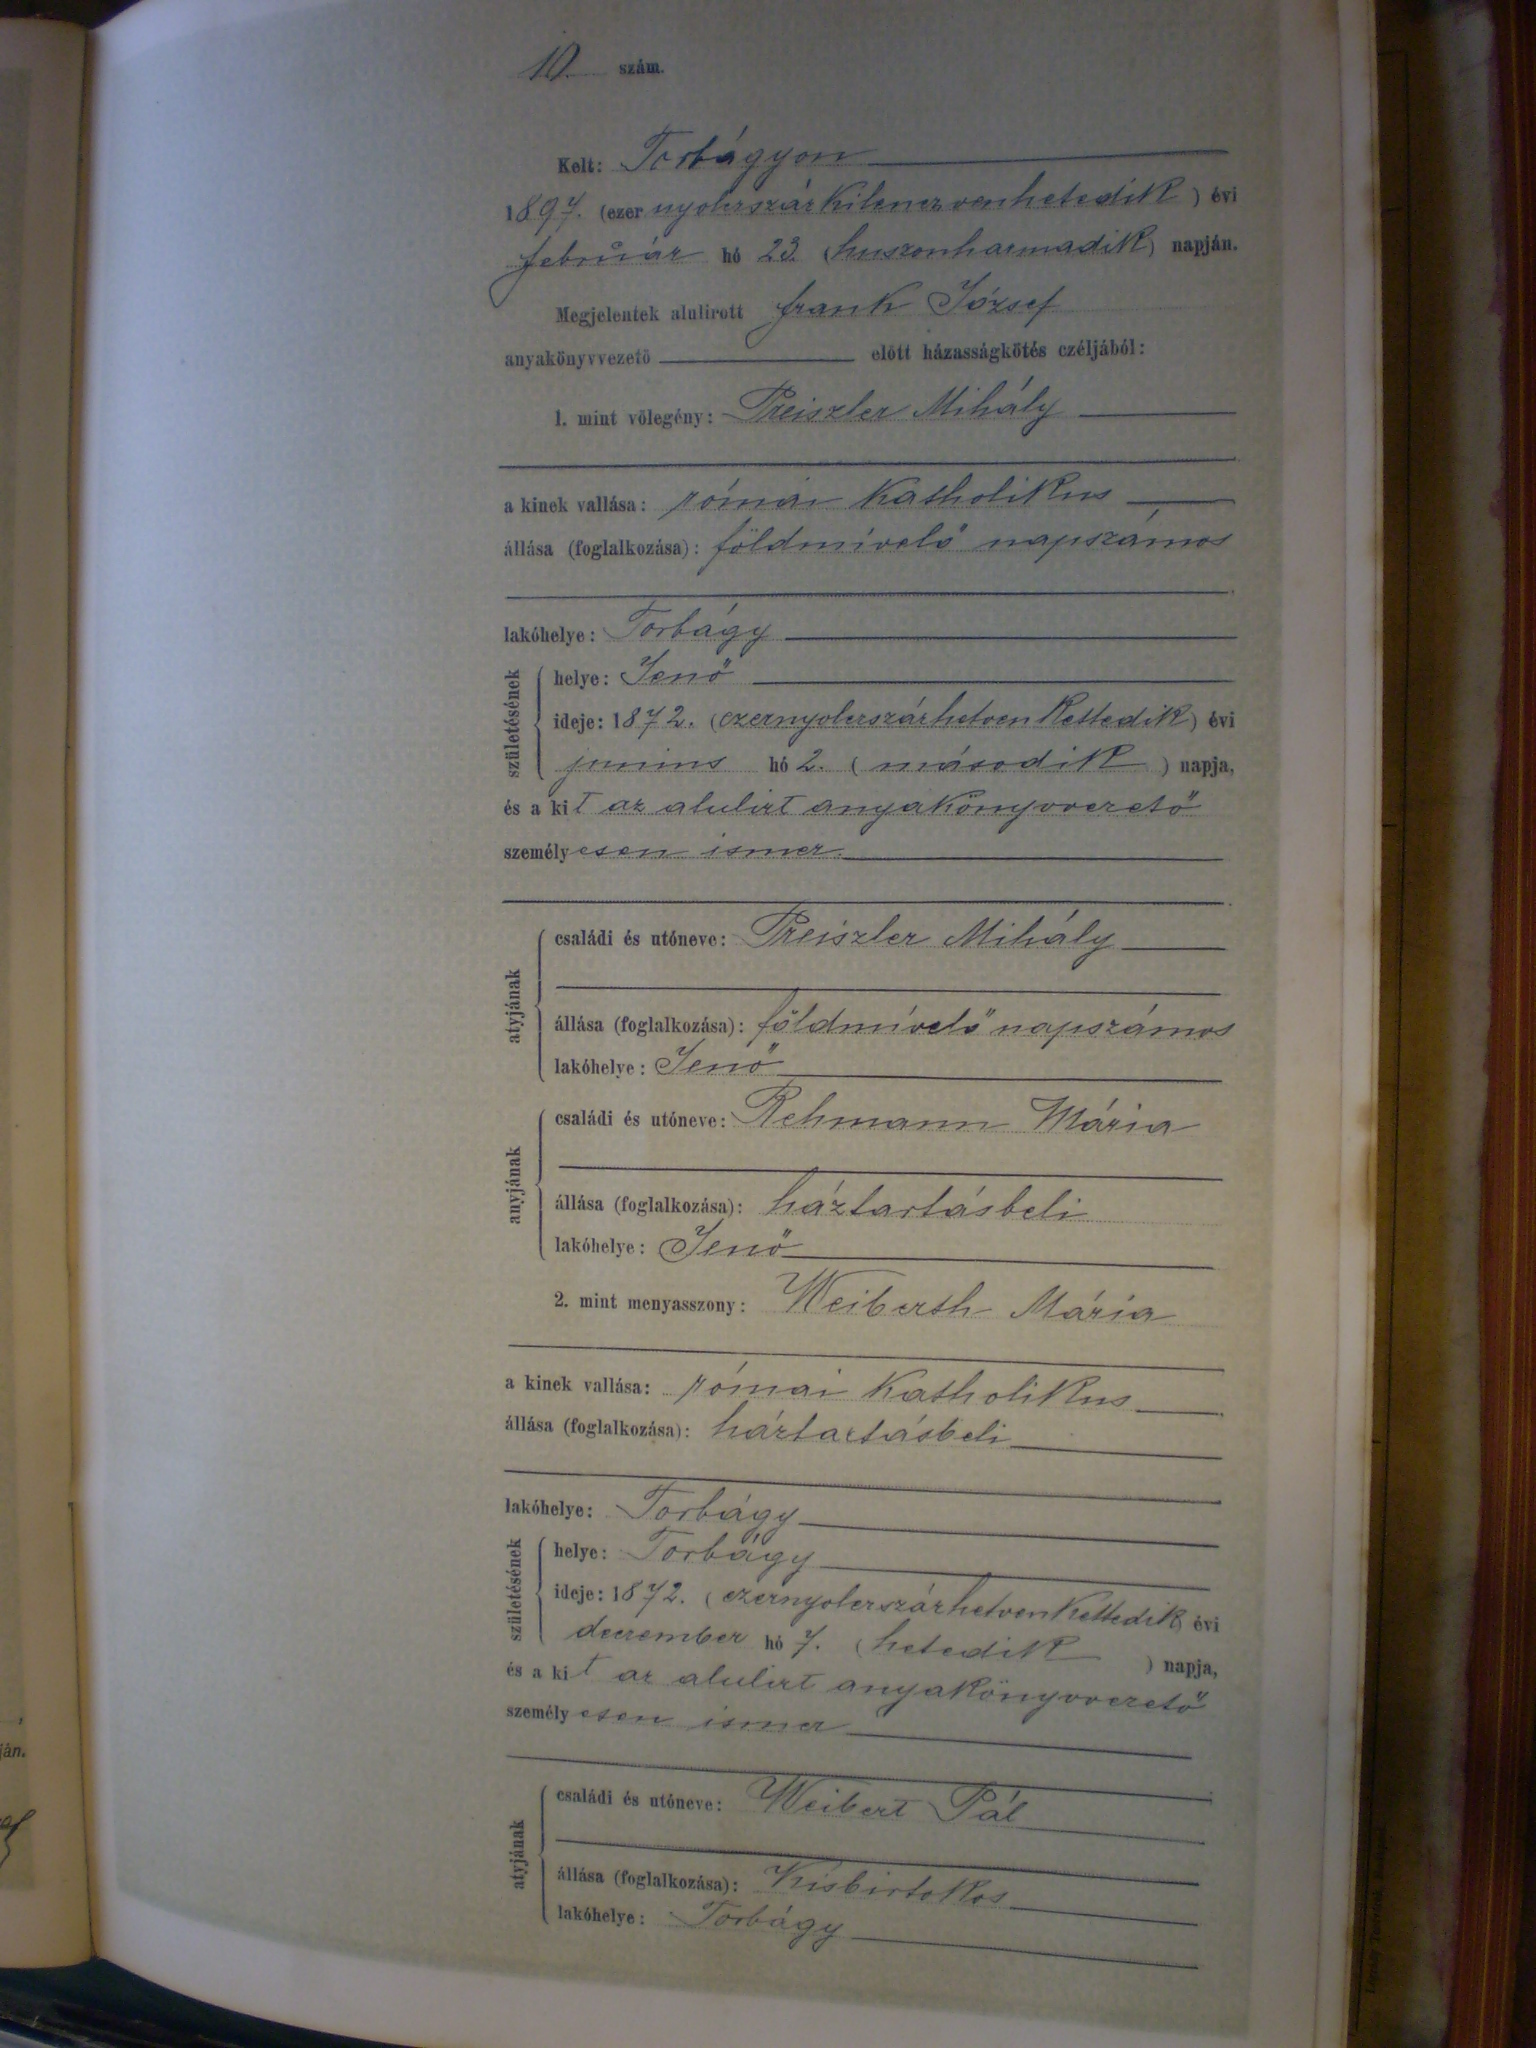 10. szám.
Kelt: Torbágyon
1897. (ezer nyolcszázkilenczvenhetedik) évi
február hó 23. (huszonharmadik) napján.
Megjelentek alulirott Frank József
anyakönyvvezető előtt házasságkötés czéljából:
1. mint vőlegény: Preiszler Mihály
a kinek vallása: római katholikus
állása (foglalkozása): földmívelő napszámos
lakóhelye: Torbágy
születésének
helye: Jenő
ideje: 1872. (ezernyolcszázhetvenkettedik) évi
junius hó 2. (második) napja,
és a kit az alulirt anyakönyvvezető
személyesen ismer.
atyjának
családi és utóneve: Preiszler Mihály
állása (foglalkozása): földmívelő napszámos
lakóhelye: Jenő
anyjának
családi és utóneve: Rehmann Mária
állása (foglalkozása): háztartásbeli
lakóhelye: Jenő
2. mint menyasszony: Weiberth Mária
a kinek vallása: római katholikus
állása (foglalkozása): háztartásbeli
lakóhelye: Torbágy
születésének
helye: Torbágy
ideje: 1872. (ezernyolcszázhetvenkettedik) évi
deczember hó 7. (hetedik) napja,
és a kit az alulirt anyakönyvvezető
személyesen ismer
atyjának
családi és utóneve: Weibert Pál
állása (foglalkozása): Kisbirtokos
lakóhelye: Torbágy